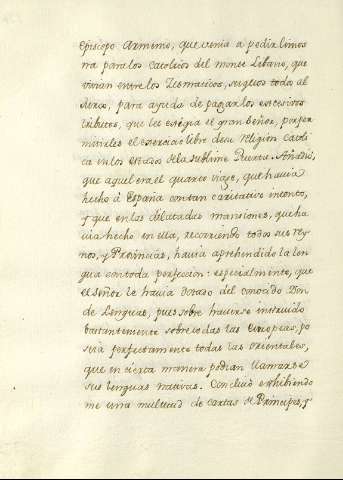 episcopo Armenio, que venia a pedir limos
na para los catolicos del monte Lebano, que
vivian entre los Zismaticos, sugetos todos al
turco, para ayuda de pagar los excesivos
tributos, que les exigia el gran Señor, por per
mitirles el exercicio libre de su Religion catoli
ca en los estados de la sublime Puerta. Añadio,
que aquel era el quarto viage, que havia
hecho à España con tan caritativo intento,
y que en las dilatadas mansiones, que ha
via hecho en ella, recorriendo todos sus rey
nos, y Provincias, havia aprehendido la len
gua con toda perfeccion: especialmente, que
el Señor le havia dotado del conocido Don
de Lenguas, pues sobre haverse instruido
bastantemente sobre todas las europeas, po
seia perfectamente todas las orientales,
que en cierta manera podian llamarse
sus lenguas nativas. Concluió exhibiendo
me una multitud de cartas de Principes, y